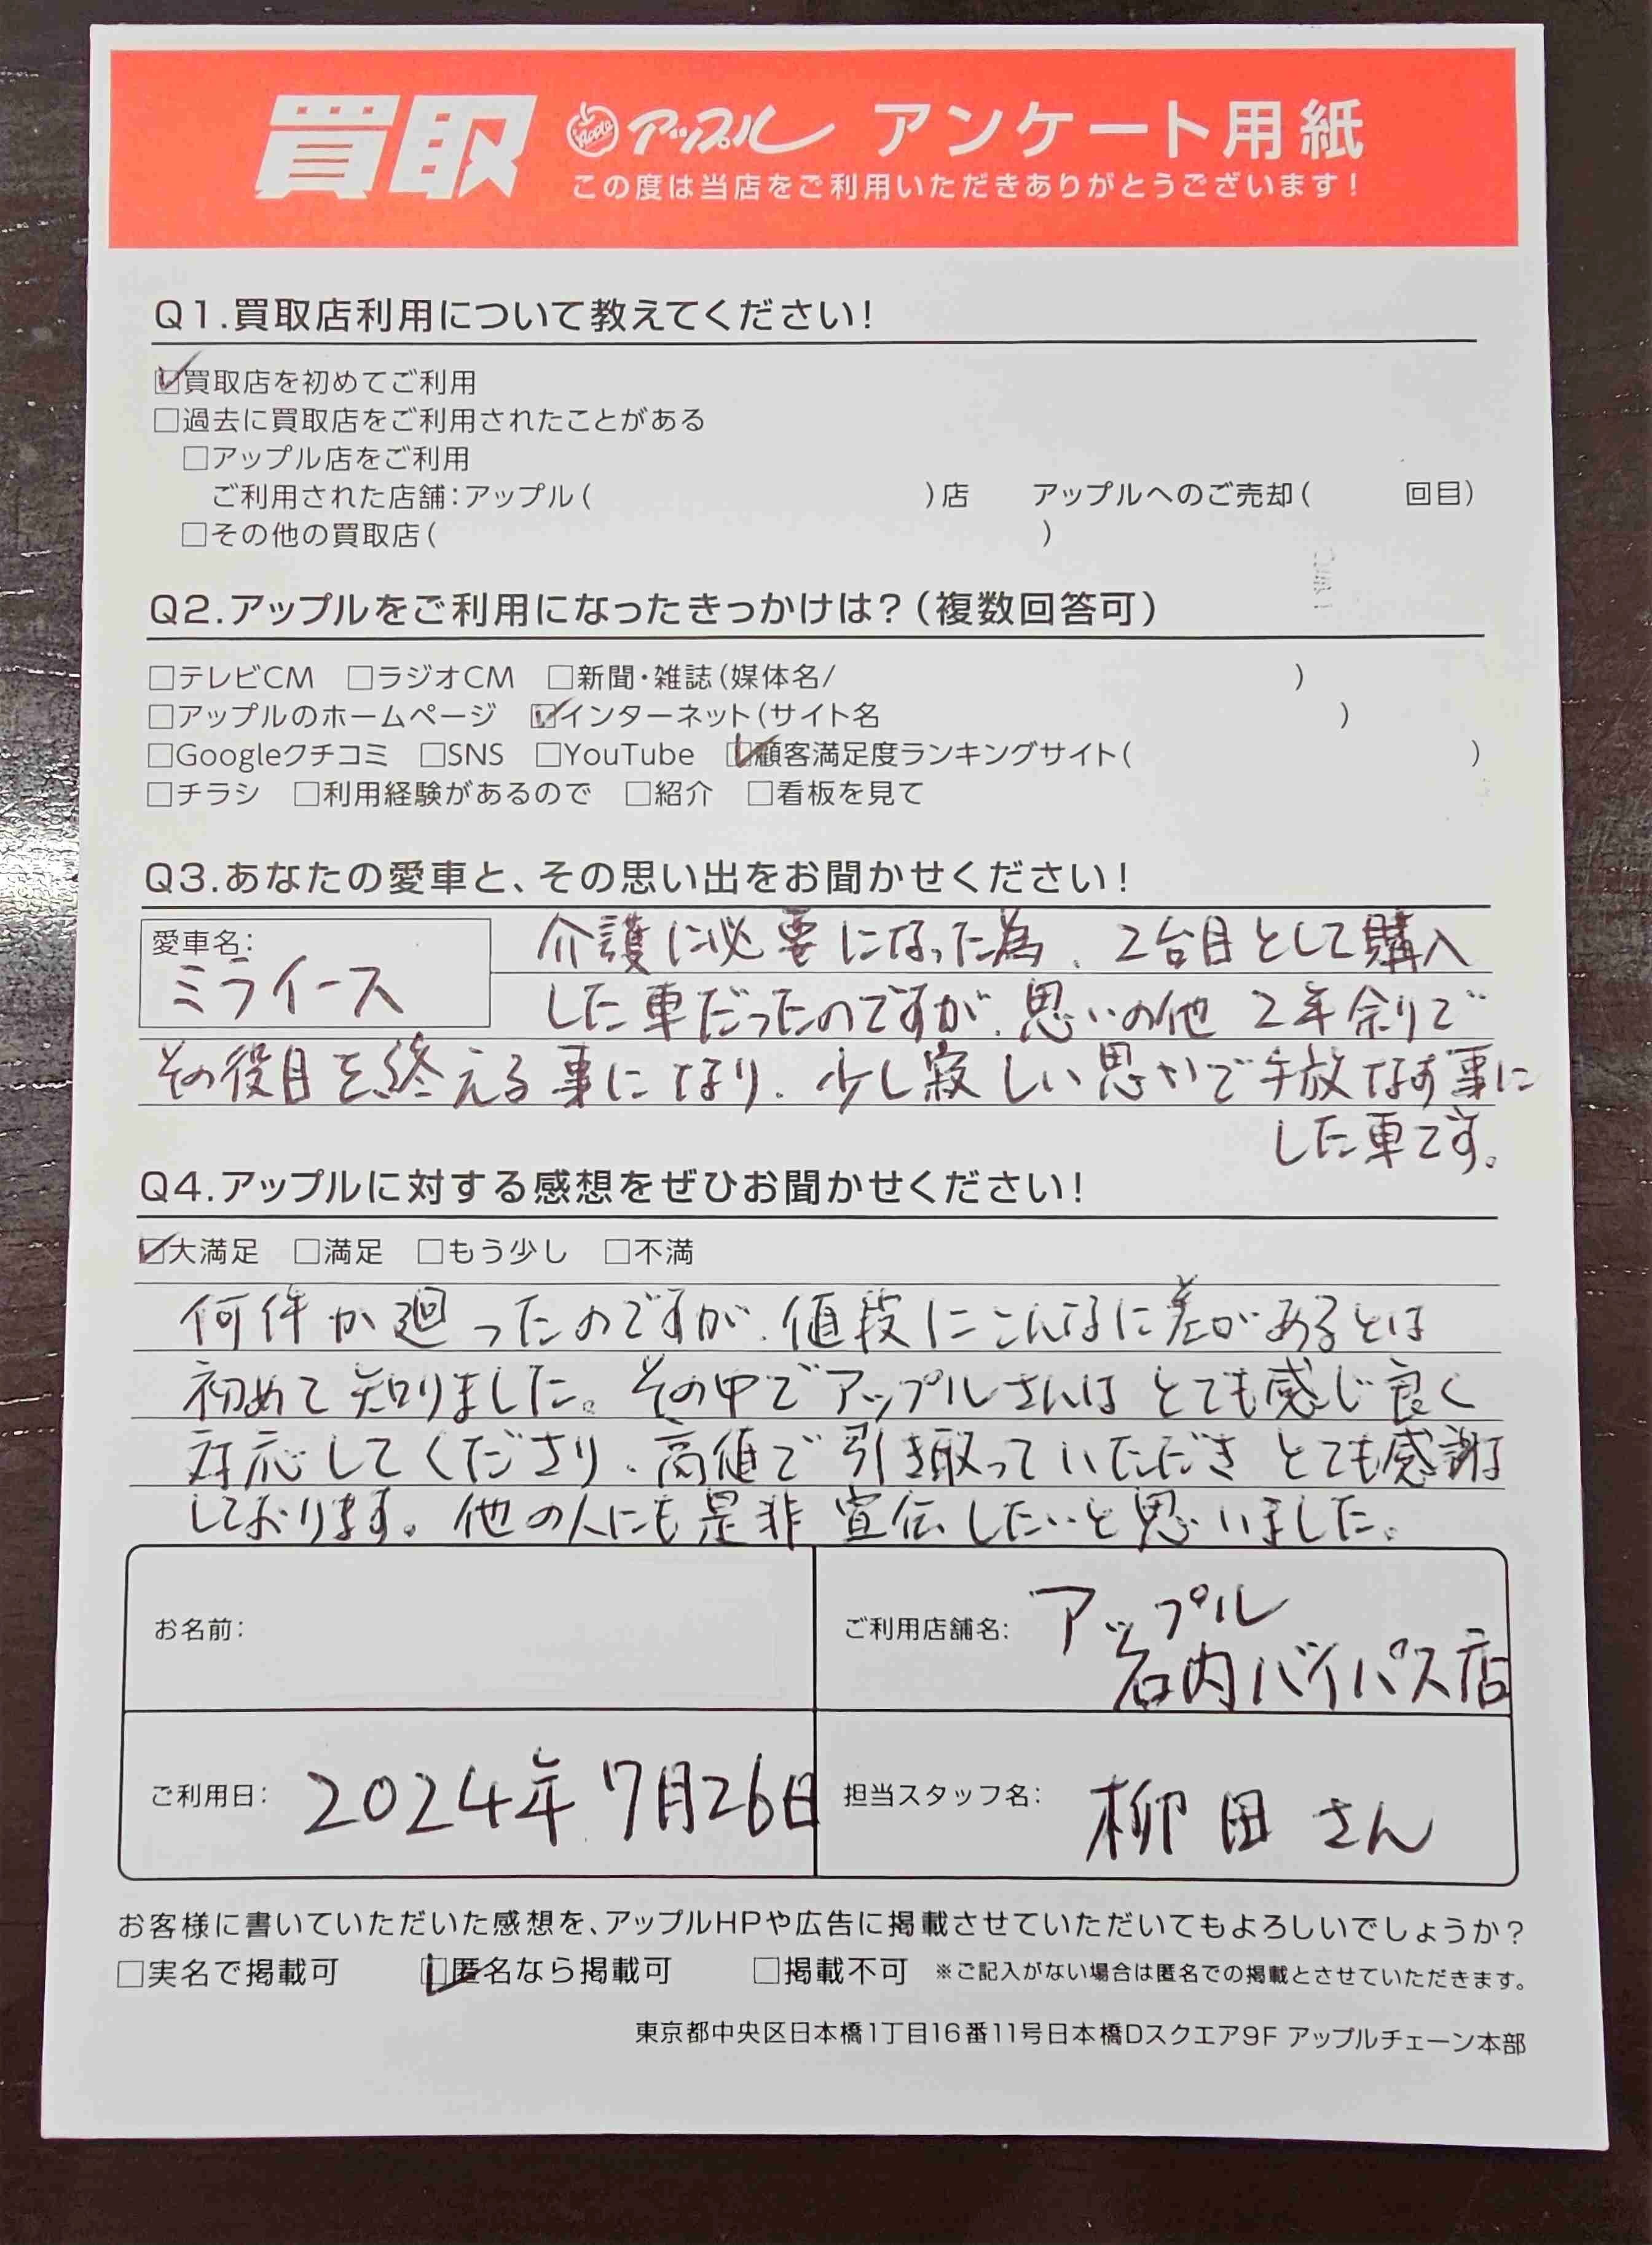 買取 Apple アップル アンケート用紙
この度は当店をご利用いただきありがとうございます!
Q1.買取店利用について教えてください!
☑買取店を初めてご利用
□過去に買取店をご利用されたことがある
□アップル店をご利用
ご利用された店舗:アップル( )店 アップルへのご売却( 回目)
□その他の買取店( )
Q2.アップルをご利用になったきっかけは?(複数回答可)
□テレビCM □ラジオCM □新聞・雑誌(媒体名/ )
□アップルのホームページ ☑インターネット(サイト名 )
□Googleクチコミ □SNS □YouTube ☑顧客満足度ランキングサイト( )
□チラシ □利用経験があるので □紹介 □看板を見て
Q3.あなたの愛車と、その思い出をお聞かせください!
愛車名:
ミライース
介護に必要になった為、2台目として購入
した車だったのですが、思いの他 2年余りで
その役目を終える事になり、少し寂しい思いで手放なす事に
した車です。
Q4.アップルに対する感想をぜひお聞かせください!
☑大満足 □満足 □もう少し □不満
何件か廻ったのですが、値段にこんなに差があるとは
初めて知りました。その中でアップルさんはとても感じ良く
対応してくださり、高値で引き取っていただき とても感謝
しております。他の人にも是非 宣伝したいと思いました。
お名前:
ご利用店舗名: アップル
石内バイパス店
ご利用日: 2024年7月26日
担当スタッフ名: 柳田さん
お客様に書いていただいた感想を、アップルHPや広告に掲載させていただいてもよろしいでしょうか?
□実名で掲載可 ☑匿名なら掲載可 □掲載不可 ※ご記入がない場合は匿名での掲載とさせていただきます。
東京都中央区日本橋1丁目16番11号日本橋Dスクエア9F アップルチェーン本部